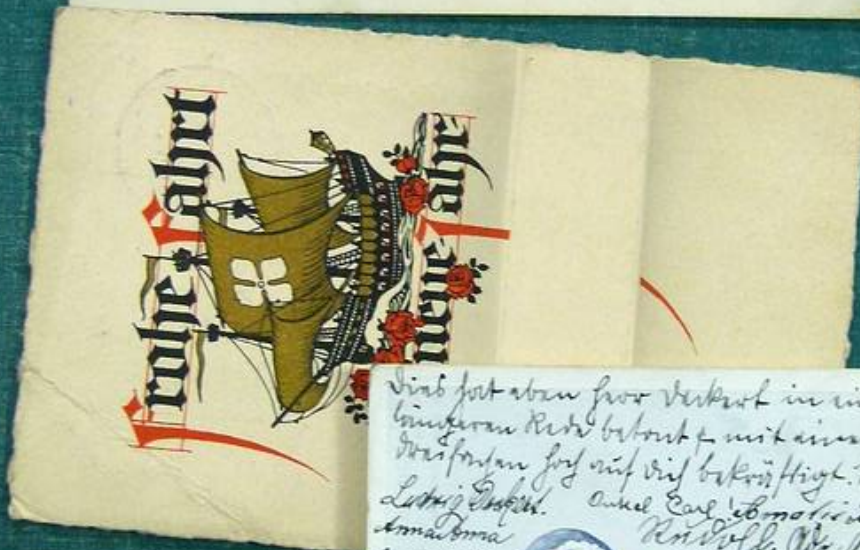 Frohe Fahrt
neue Jahr
Dies hat eben Herr Deckert in
längeren Rede betont & mit eine
dreifachen Hoch auf dich bekräftigt.
Ludwig Onkel Carl
Anna
Rudolf